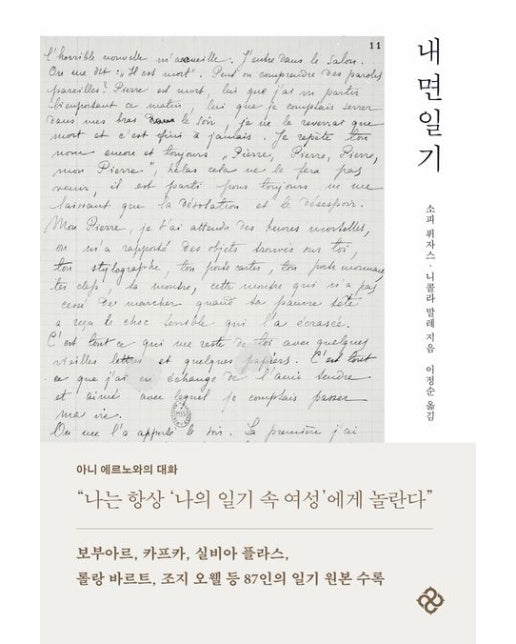 11
l'horrible nouvelle m'accueille. J'entre dans le salon.
On me dit : "Il est mort". Peut on comprendre des paroles
pareilles? Pierre est mort, lui que j'ai vu partir
bien portant ce matin, lui que je comptais serrer
dans mes bras le soir, je ne le reverrai que
mort et c'est fini à jamais. Je répète ton
nom encore et toujours "Pierre, Pierre, Pierre,
mon Pierre", hélas cela ne le fera pas
venir, il est parti pour toujours ne me
laissant que la désolation et le désespoir.
Mon Pierre, je t'ai attendu des heures mortelles,
on m'a rapporté des objets trouvés sur toi,
ton stylographe, ton porte cartes, ton porte monnaie,
tes clefs, ta montre, cette montre qui n'a pas
cessé de marcher quand ta pauvre tête
a reçu le choc terrible qui l'a écrasée.
C'est tout ce qui me reste de toi avec quelques
vieilles lettres et quelques papiers. C'est tout
ce que j'ai en échange de l'ami tendre
et aimé avec lequel je comptais passer
ma vie.
On me l'a apporté le soir. La première j'ai
내면일기
소피 퓌자스·니콜라 말레 지음 이정순 옮김
아니 에르노와의 대화
“나는 항상 ‘나의 일기 속 여성’에게 놀란다”
보부아르, 카프카, 실비아 플라스,
롤랑 바르트, 조지 오웰 등 87인의 일기 원본 수록